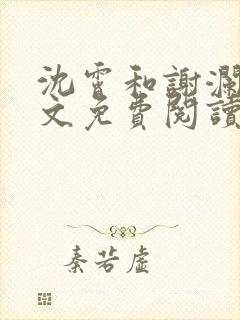 沈霄和謝瀾
文免費閱讀
秦若虛